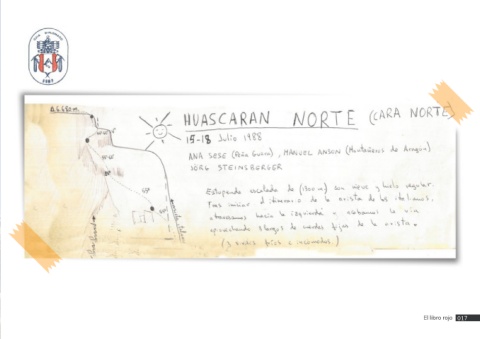 HUASCARAN NORTE (CARA NORTE)
15-18 Julio 1988
ANA SESE (Peña Guara), MANUEL ANSON (Montañeros de Aragón)
JÖRG STEINSBERGER
Estupenda escalada de (1800 m) con nieve y hielo regular.
Tras iniciar el itinerario de la arista de los italianos,
atravesamos hacia la izquierda y acabamos la vía
aprovechando largos de cuerdas fijas de la arista.
(3 vivacs fríos e incómodos.)
El libro rojo 017